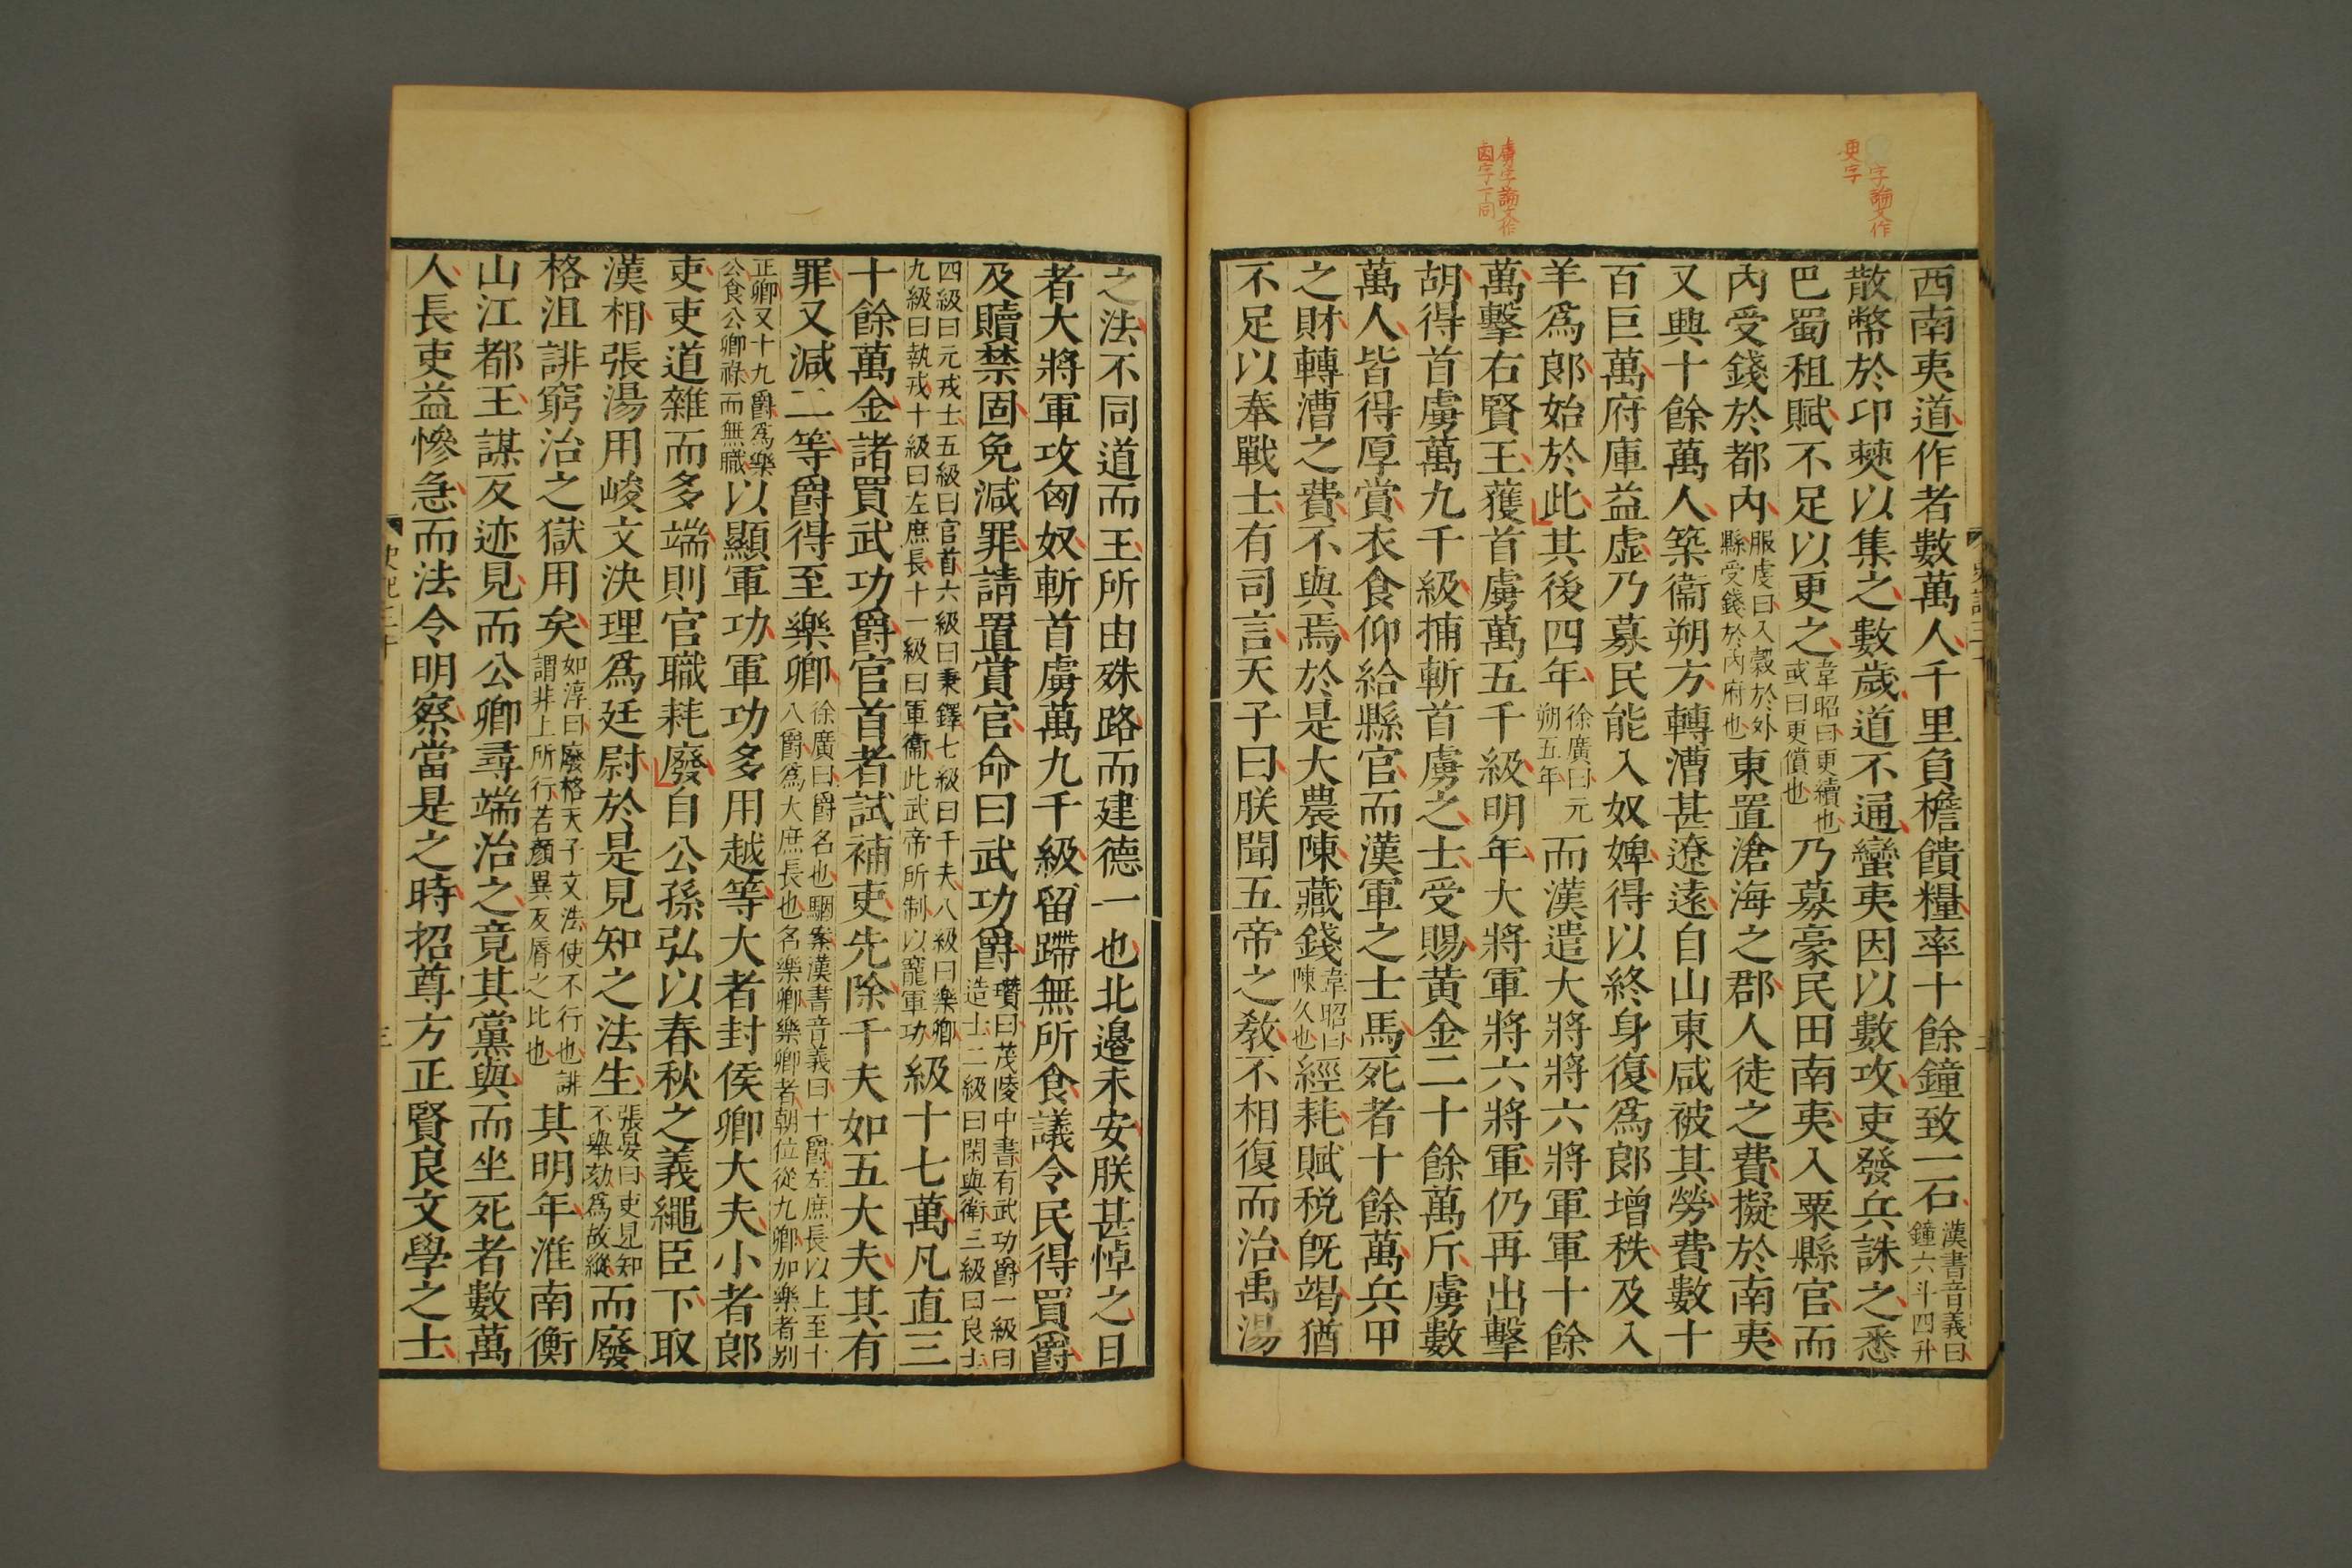 字論文作
更字
虜字論文作
鹵字下同
西南夷道作者數萬人千里負檐饋糧率十餘鐘致一石漢書音義曰鐘六斗四升
散幣於卭僰以集之數歲道不通蠻夷因以數攻吏發兵誅之悉
巴蜀租賦不足以更之韋昭曰更續也或曰更償也乃募豪民田南夷入粟縣官而
內受錢於都內服虔曰入穀於外縣受錢於內府也東置滄海之郡人徒之費擬於南夷
又興十餘萬人築衞朔方轉漕甚遼遠自山東咸被其勞費數十
百巨萬府庫益虛乃募民能入奴婢得以終身復爲郎增秩及入
羊爲郎始於此其後四年徐廣曰元朔五年而漢遣大將將六將軍軍十餘
萬擊右賢王獲首虜萬五千級明年大將軍將六將軍仍再出擊
胡得首虜萬九千級捕斬首虜之士受賜黃金二十餘萬斤虜數
萬人皆得厚賞衣食仰給縣官而漢軍之士馬死者十餘萬兵甲
之財轉漕之費不與焉於是大農陳藏錢韋昭曰陳久也經耗賦税旣竭猶
不足以奉戰士有司言天子曰朕聞五帝之敎不相復而治禹湯
之法不同道而王所由殊路而建德一也北邊未安朕甚悼之日
者大將軍攻匈奴斬首虜萬九千級留蹛無所食議令民得買爵
及贖禁固免減罪請置賞官命曰武功爵瓚曰茂陵中書有武功爵一級曰造士二級曰閑輿衛三級曰良士
四級曰元戎士五級曰官首六級曰秉鐸七級曰千夫八級曰樂卿九級曰執戎十級曰左庶長十一級曰軍衞此武帝所制以寵軍功級十七萬凡直三
十餘萬金諸買武功爵官首者試補吏先除千夫如五大夫其有
罪又減二等爵得至樂卿徐廣曰爵名也駰案漢書音義曰十爵左庶長以上至十八爵爲大庶長也名樂卿樂卿者朝位從九卿加樂者別
正卿又十九爵爲樂公食公卿祿而無職以顯軍功軍功多用越等大者封侯卿大夫小者郎
吏吏道雜而多端則官職耗廢自公孫弘以春秋之義繩臣下取
漢相張湯用峻文決理爲廷尉於是見知之法生張晏曰吏見知不舉劾爲故縱而廢
格沮誹窮治之獄用矣如淳曰廢格天子文法使不行也誹謂非上所行若顏異反脣之比也其明年淮南衡
山江都王謀反迹見而公卿尋端治之竟其黨與而坐死者數萬
人長吏益慘急而法令明察當是之時招尊方正賢良文學之士
史記三十
三